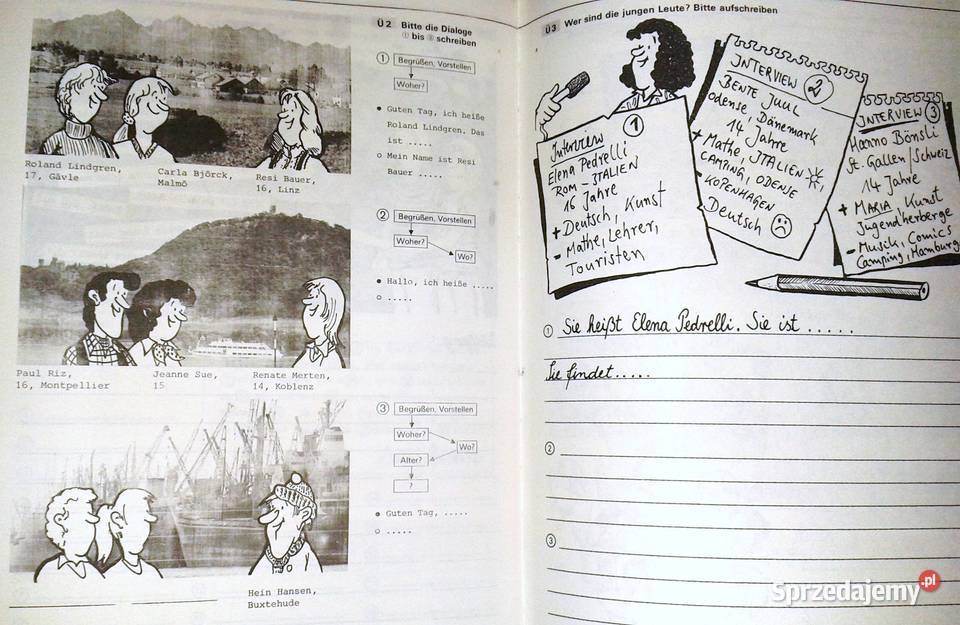 Ü2 Bitte die Dialoge
① bis ③ schreiben
①
Begrüßen, Vorstellen
Woher?
● Guten Tag, ich heiße
Roland Lindgren. Das
ist .....
○ Mein Name ist Resi
Bauer .....
Roland Lindgren,
17, Gävle
Carla Björck,
Malmö
Resi Bauer,
16, Linz
②
Begrüßen, Vorstellen
Woher?
Wo?
● Hallo, ich heiße .....
○ .....
Paul Riz,
16, Montpellier
Jeanne Sue,
15
Renate Merten,
14, Koblenz
③
Begrüßen, Vorstellen
Woher?
Wo?
Alter?
?
● Guten Tag, .....
○ .....
Hein Hansen,
Buxtehude
Ü3 Wer sind die jungen Leute? Bitte aufschreiben
Interview ①
Elena Pedrelli
ROM – ITALIEN
16 Jahre
+ Deutsch, Kunst
- Mathe, Lehrer,
Touristen
INTERVIEW ②
BENTE JUUL
odense, Dänemark
14 Jahre
+ Mathe, ITALIEN
CAMPING, ODENSE
- KOPENHAGEN
Deutsch
INTERVIEW ③
Hanno Bönsli
St. Gallen/Schweiz
14 Jahre
+ MARIA, Kunst
Jugendherberge
- Musik, Comics
Camping, Hamburg
① Sie heißt Elena Pedrelli. Sie ist .....
Sie findet .....
②
③
Sprzedajemy.pl